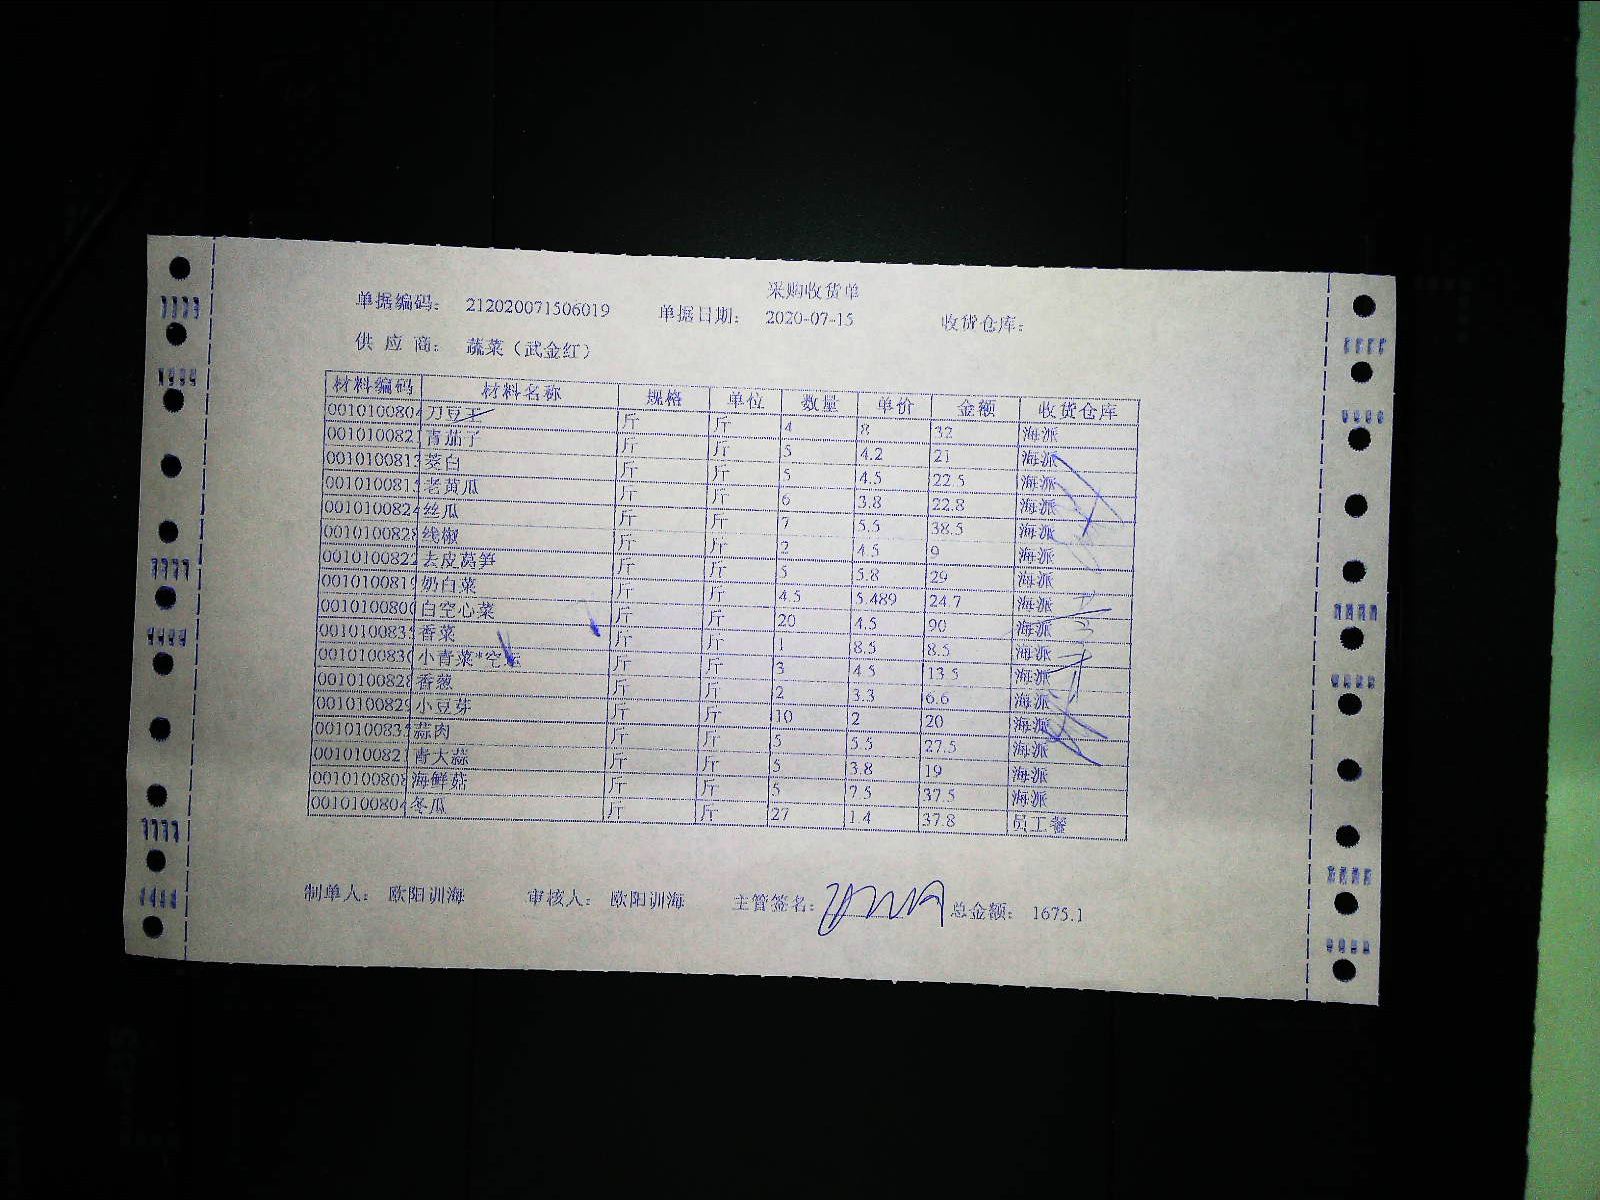 采购收货单
单据编码： 212020071506019 单据日期： 2020-07-15 收货仓库：
供 应 商： 蔬菜（武金红）
材料编码 材料名称 规格 单位 数量 单价 金额 收货仓库
0010100804 刀豆王 斤 斤 4 8 32 海派
001010082 青茄子 斤 斤 5 4.2 21 海派
0010100813 茭白 斤 斤 5 4.5 22.5 海派
001010081 老黄瓜 斤 斤 6 3.8 22.8 海派
0010100824 丝瓜 斤 斤 7 5.5 38.5 海派
001010082 线椒 斤 斤 2 4.5 9 海派
0010100822 去皮莴笋 斤 斤 5 5.8 29 海派
001010081 奶白菜 斤 斤 4.5 5.489 24.7 海派
001010080 白空心菜 斤 斤 20 4.5 90 海派
001010083 香菜 斤 斤 1 8.5 8.5 海派
001010083 小青菜*空运 斤 斤 3 4.5 13.5 海派
001010082 香葱 斤 斤 2 3.3 6.6 海派
001010082 小豆芽 斤 斤 10 2 20 海派
001010083 蒜肉 斤 斤 5 5.5 27.5 海派
001010082 青大蒜 斤 斤 5 3.8 19 海派
001010080 海鲜菇 斤 斤 5 7.5 37.5 海派
0010100804 冬瓜 斤 斤 27 1.4 37.8 员工餐
制单人： 欧阳训海 审核人： 欧阳训海 主管签名： 总金额： 1675.1